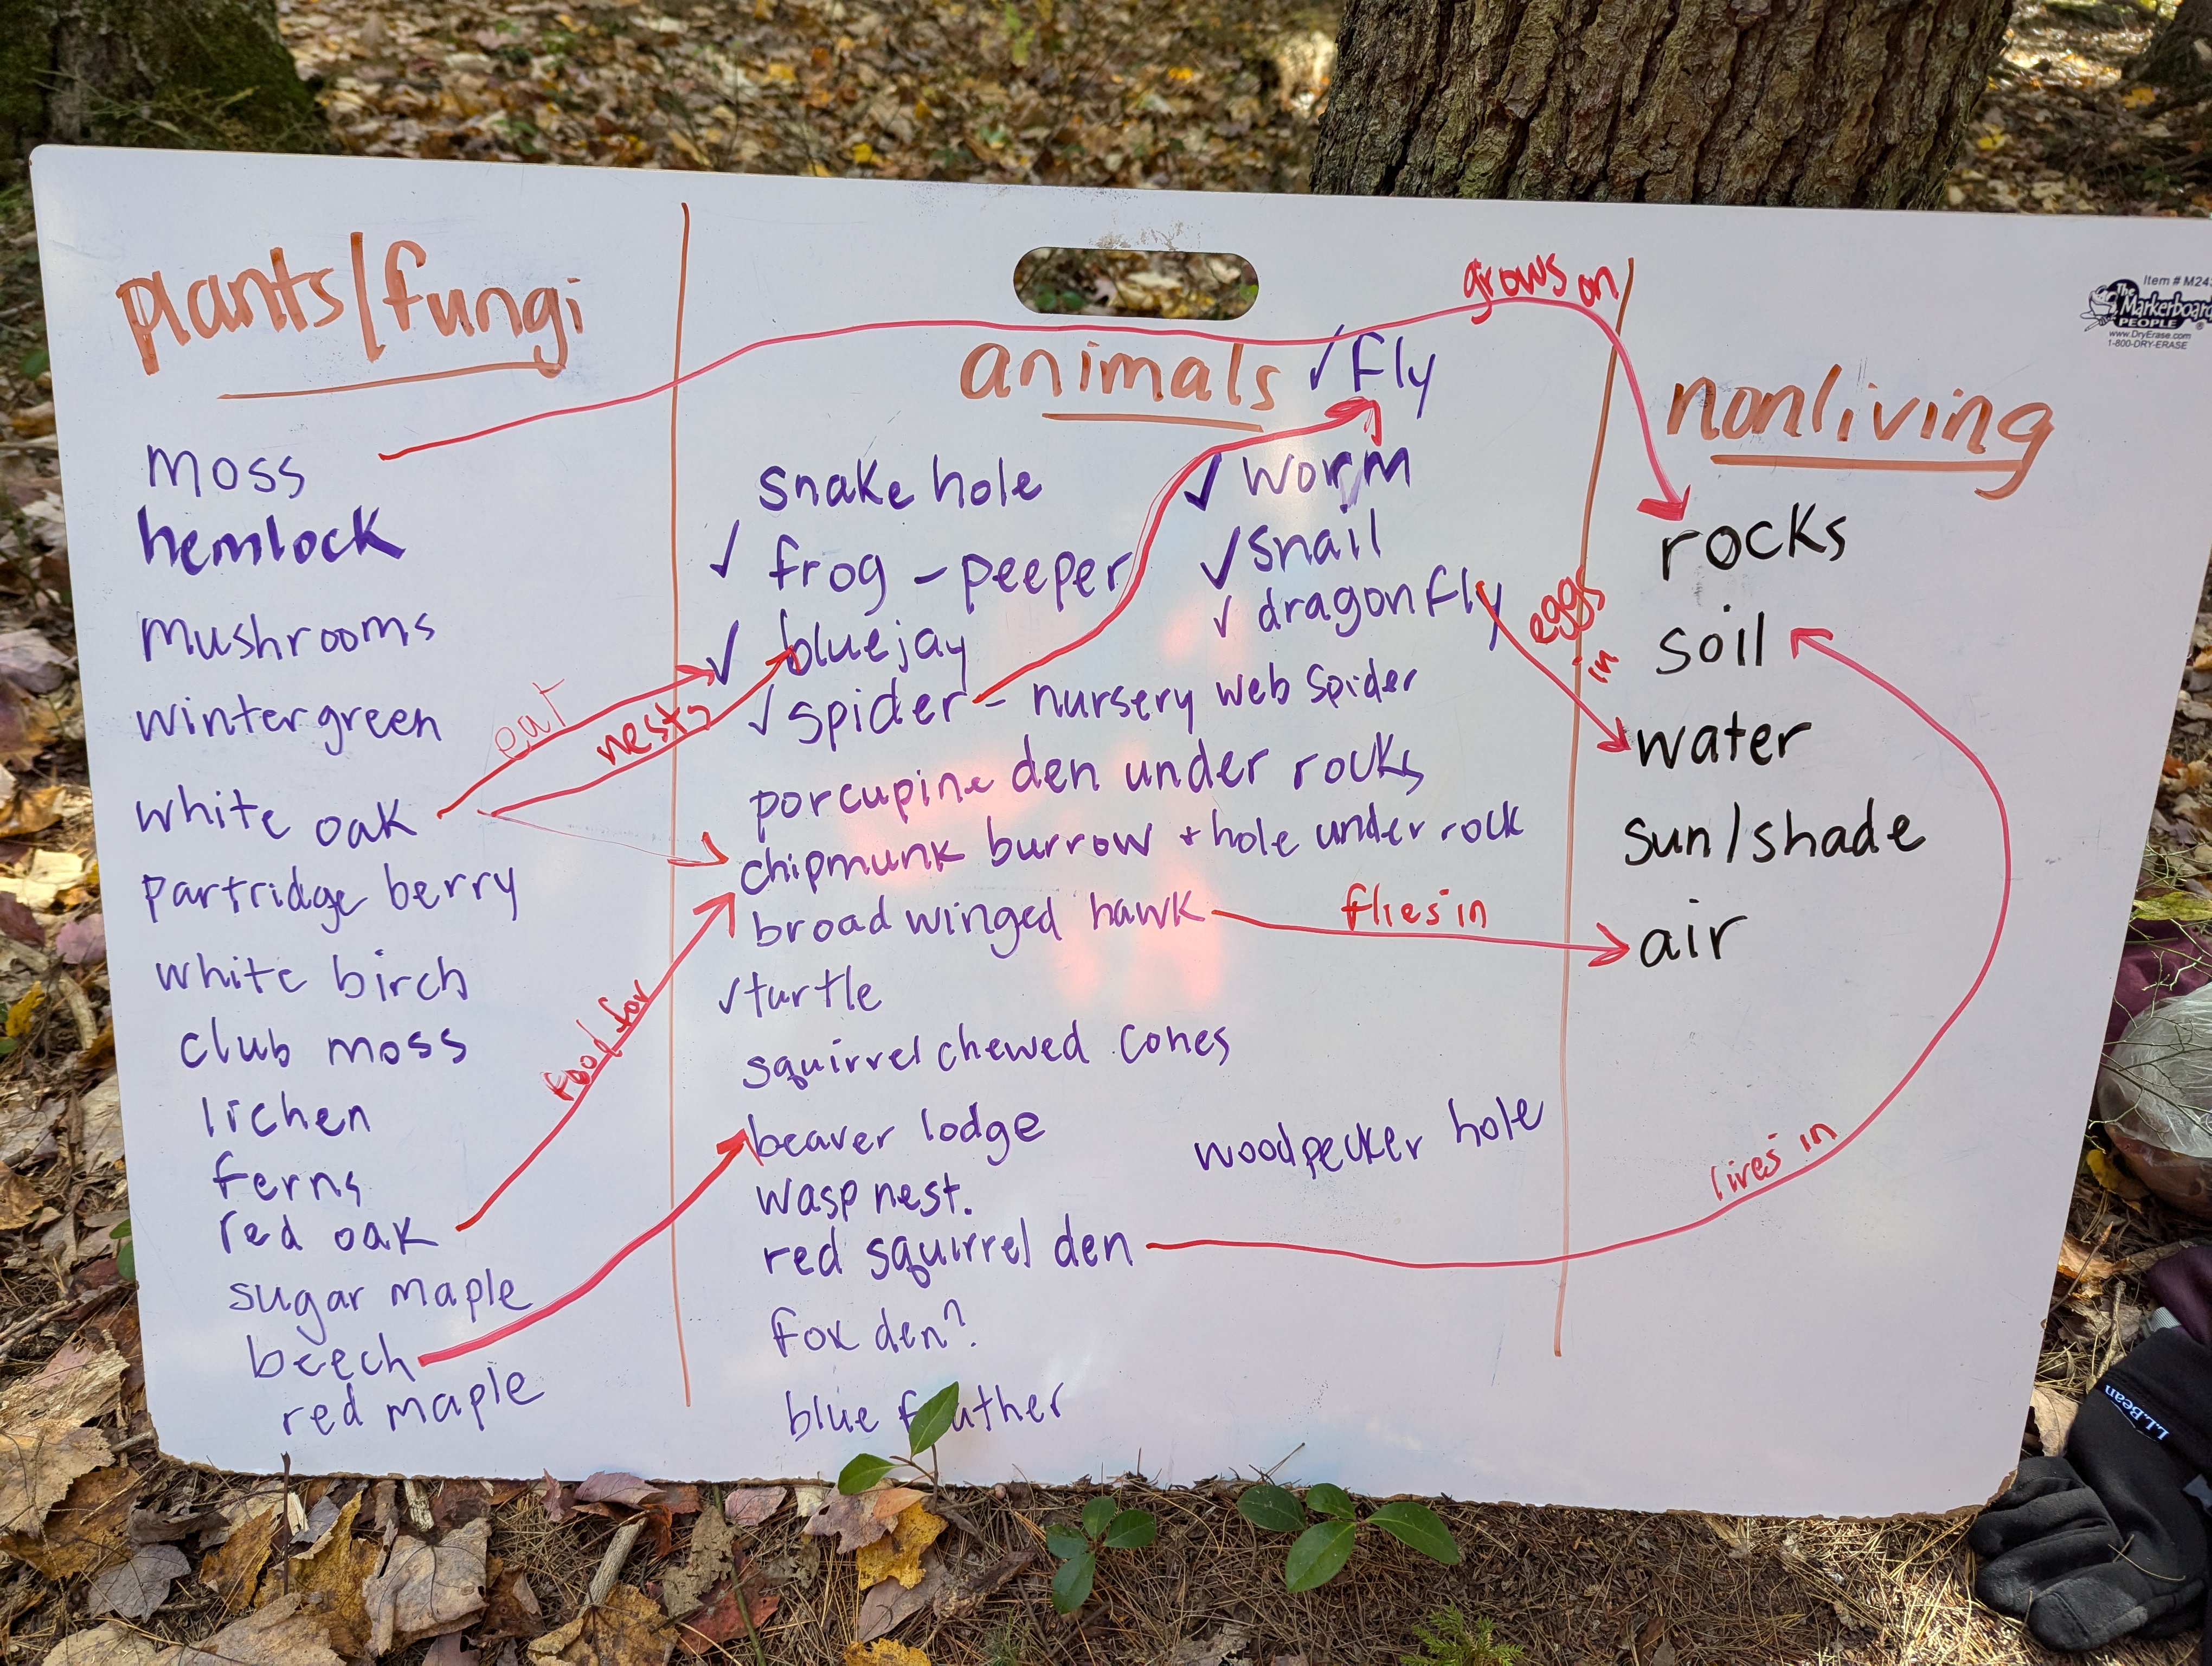 plants/fungi
moss
hemlock
mushrooms
wintergreen
white oak
partridge berry
white birch
club moss
lichen
ferns
red oak
sugar maple
beech
red maple
eat
nests
food for
animals
✓ fly
✓ worm
✓ snail
✓ dragonfly
snake hole
✓ frog - peeper
✓ bluejay
✓ spider - nursery web spider
porcupine den under rocks
chipmunk burrow + hole under rock
broad winged hawk
✓ turtle
squirrel chewed cones
beaver lodge
woodpecker hole
wasp nest.
red squirrel den
fox den?
blue feather
grows on
eggs
in
flies in
lives in
nonliving
rocks
soil
water
sun/shade
air
Item # M24
The
Markerboard
PEOPLE ®
www.DryErase.com
1-800-DRY-ERASE
L.L.Bean